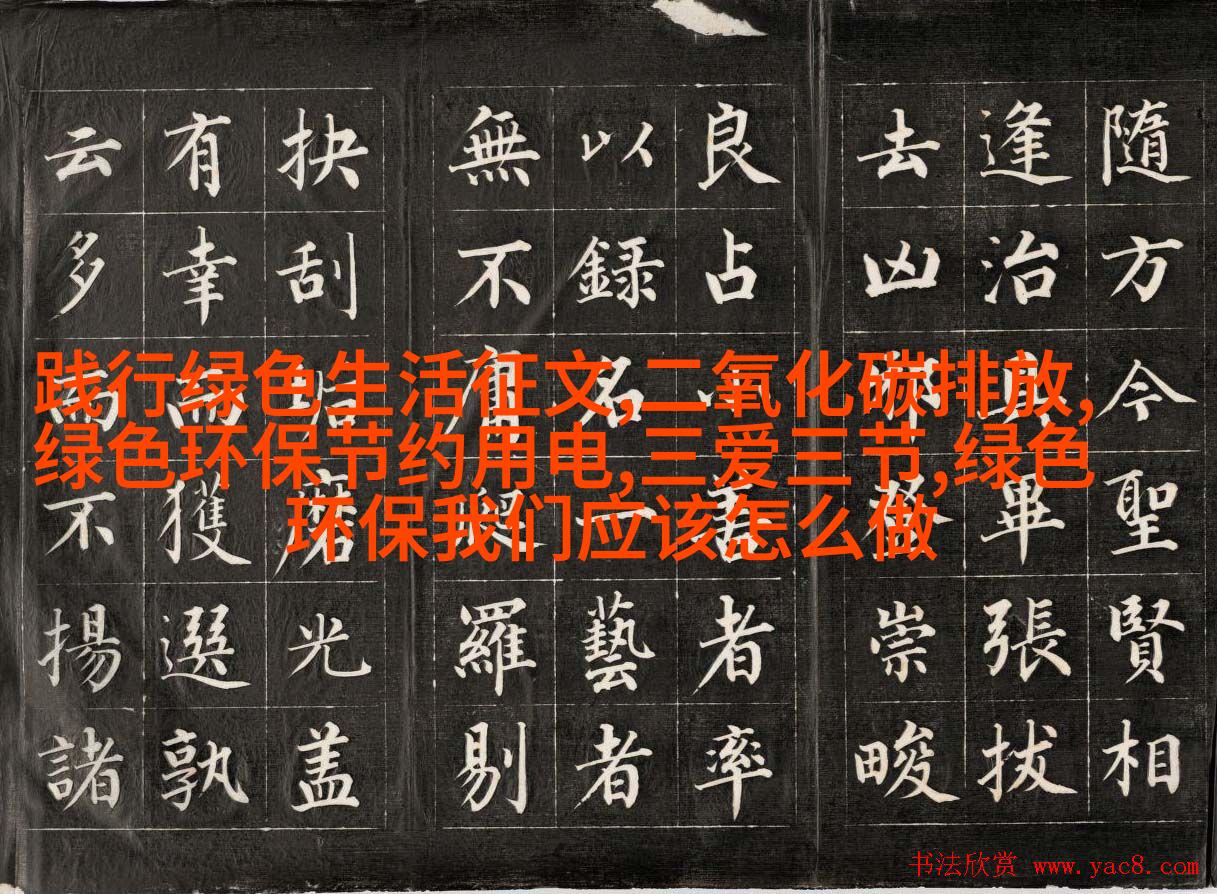 隨方今聖賢相
逢治具畢張拔
去凶邪登崇畯
良占小善者率
以錄名一藝者
無不庸羅剔
抉刮垢磨光盖
有幸而獲選孰
云多而不揚諸
践行绿色生活征文,二氧化碳排放,
绿色环保节约用电,三爱三节,绿色
环保我们应该怎么做
书法欣赏 www.yac8.com